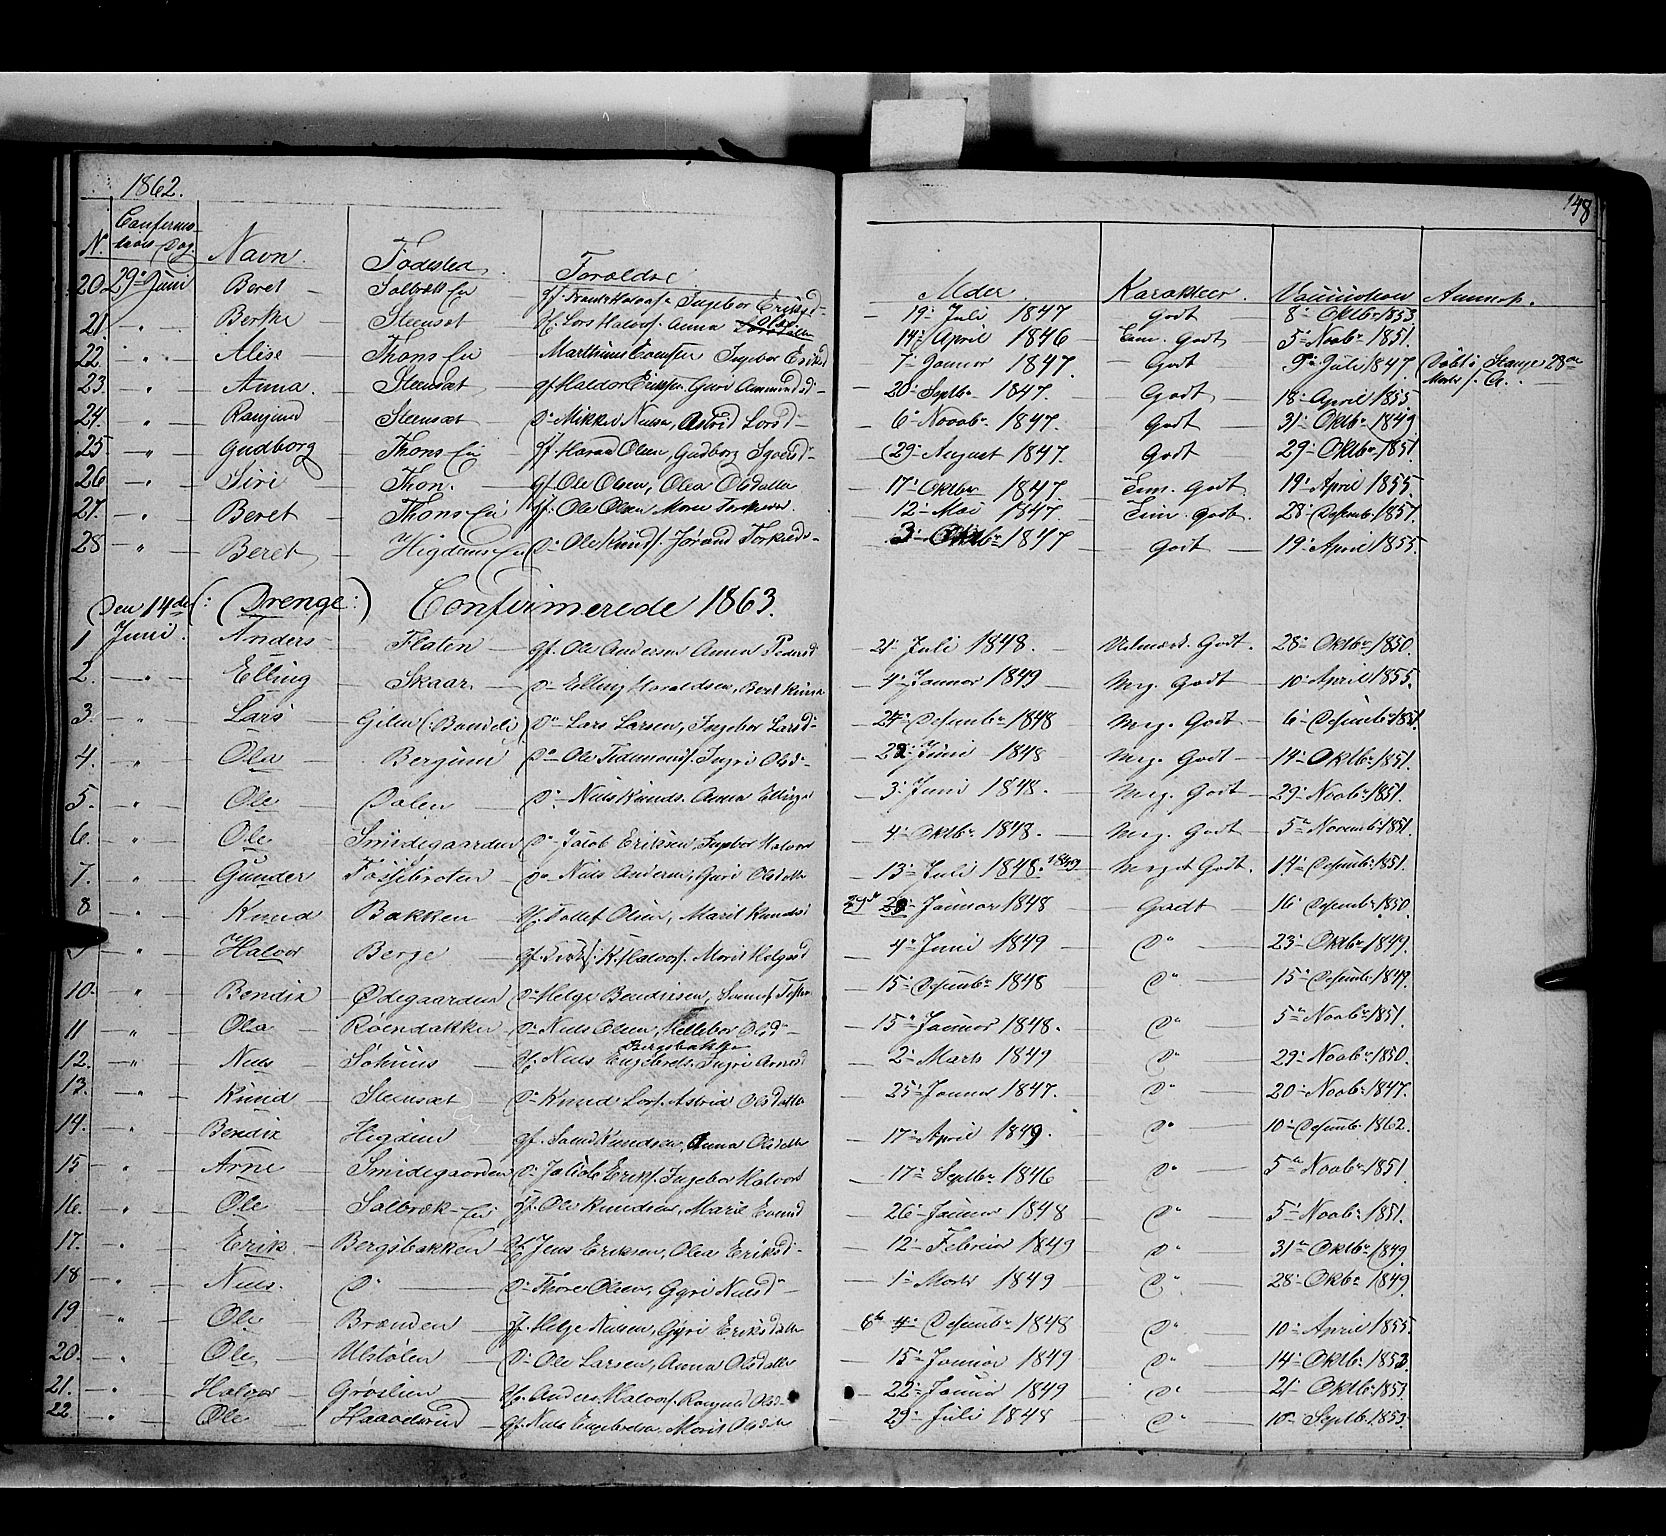 1862.
148
N. Confirmationsdag. Navn. Fødested Foræeldre Alder. Karakteer. Vaccination Anmærk.
20. 29de Juni Beret Solbræk Ei gf. Ingebor Eriksd 19 Juli 1847 Godt 8 Oktbr 1853
21 " Berthe Steensæt Lars Halvors. Anna Olsd 14 April 1846 Godt 5 Novbr 1851.
22. " Alise Thons Ei Marthinus Ingebor Eriksd 7 Januar 1847. Godt 9 Juli 1847 Døbt i Stange 28de Marts
23. " Anna Steensæt gf. Haldor Eriksen Guri Amundsd 20 Septbr 1847. Godt 18 April 1855
24. " Rangnud Steensæt Do Mikkel Nielsen, Astrid Larsd 6 Novbr 1847. Godt 31 Oktbr 1849
25 " Gudborg Thons Ei Olsen, Gudborg 29 August 1847. Godt 29 Oktbr 1851.
26 " Siri Thon. gf. Ole Olsen, Olea Olsdatter 17 Oktbr 1847. Godt 19 April 1855.
27. " Beret Thons Ei gf. Ole Olsen 12 Mai 1847. Godt. 28 Desemb. 1851.
28 " Beret Higdens Ei Do Ole Knuds. Jørand Torkilds 3 Oktbr 1847 Godt 19 April 1855.
Den 14de (: Drenge :) Confirmerede 1863.
1 Juni. Anders Flaten gf. Ole Andersen Anna Pedersd 21 Juli 1848. Udmærk. Godt. 28 Oktbr 1850.
2. " Elling Skaar Do Elling Haraldsen, Beret 4 Januar 1849 Meg. Godt 10 April 1855.
3. " Lars Gilen (: Bandeli Do Lars Larsen, Ingebor Larsd 24 Desembr 1848 Meg. Godt 6 Desemb. 1851
4. " Ola Bergum Do Ole Tidemands. Ingri Olsd 22 Juni 1848 Meg. Godt 14 Oktbr 1851.
5. " Ole Dalen Do Niels Knuds. Anna Ellings 3 Juni 1848. Meg. Godt 29 Novbr 1851.
6. " Ole Smidegaarden Do Jacob Eriksen, Ingebor Halvors 4 Oktbr 1848. Meg. Godt 5 Novemb. 1851.
7. " Gunder Fossebroten Do Niels Andersen, Guri Olsdatter 13 Juli 1848. 1849 Meget Godt. 14 Desemb. 1851.
8 " Knud Bakken Tollef Olsen, Marit Knudsd 29de Januar 1848 Godt 16 Desemb. 1850.
" Halvor Berge gf. K. Halvors. Marit Helgesd 4 Juni 1849 Do 23 Oktbr 1849.
10. " Bendix Ødegaarden Do Helge Bendixsen, 15 Desembr 1848 Do 15 Desemb. 1849.
11 " Ola Røendakker Do Niels Olsen, Hellebor Olsd 15 Januar 1848. Do 5 Novbr 1851.
Bergsbakken
12. " Niels Niels Engebrets. Ingri Arnesd 2 Marts 1849 Do 29 Novbr 1850.
13. " Knud Steensæt Do Knud Lars. Astrid Olsdatter 25 Januar 1847. Do 20 Novbr 1847.
14. " Bendix Higden gf. Knudsen, Anna Olsdatter 17 April 1849. Do 10 Desemb. 1862.
15 " Arne Smidegaarden Do Jacob Eriks. Ingebor Halvors 17 Septbr 1846 Do 5 Novbr 1851.
16. " Ole Solbræk Ei gf. Ole Knudsen, Marit 26 Januar 1848 Do 5 Novbr 1851.
17. " Erik Bergsbakken Jens Eriksen, Olea Eriksd 12 Februar 1849 Do 31 Oktbr 1849.
18 " Niels. Do Do Thore Olsen, Gyri Nielsd 1 Marts 1849 Do 28 Oktbr 1849.
19 " Ole Brænden gf. Helge Nielsen, Gyri Eriksdatter 6te 4 Desembr 1848 Do 10 April 1855.
20. " Ole Ulstølen Do Ole Larsen, Anna Olsdatter 15 Januar 1849 Do 14 Oktbr 1853.
21. " Halvor Grøslien Anders Halvors. Rangnd Olsd 22 Januar 1849 Do 21 Oktb. 1853.
22 " Ole Haavdsrud gf. Niels Engebretsen, Marit Olsdatter 29 Juli 1848 Do 10 Septb. 1853.